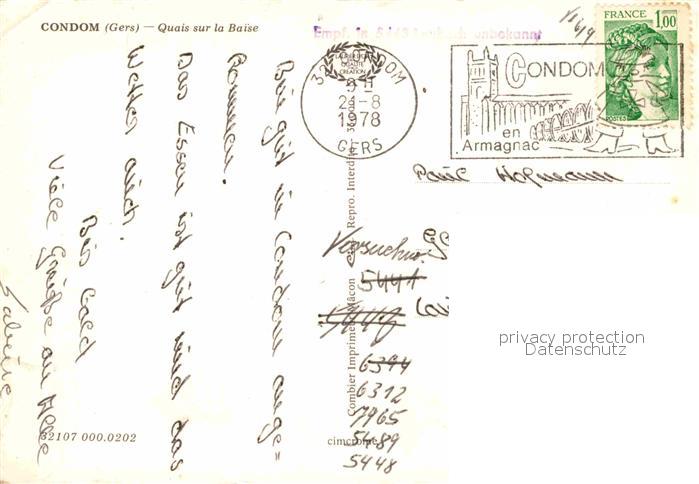 CONDOM (Gers) — Quais sur la Baïse
Empf. in 5443 unbekannt
LABORATOIRE
QUALITÉ
CREATION
32 CONDOM
24-8
1978
GERS
FRANCE
1,00
POSTES
CONDOM
en
Armagnac
Bin gut in Condom ange=
kommen.
Das Essen ist gut und das
Wetter auch.
Bis bald
Viele Grüße an Alle
Sabine
Paul Hofmann
Versuchen
5441
6394
6312
7965
5489
5448
Combier Imprimeur Mâcon
Repro. Interdite
cimcrome
32107 000.0202
privacy protection
Datenschutz